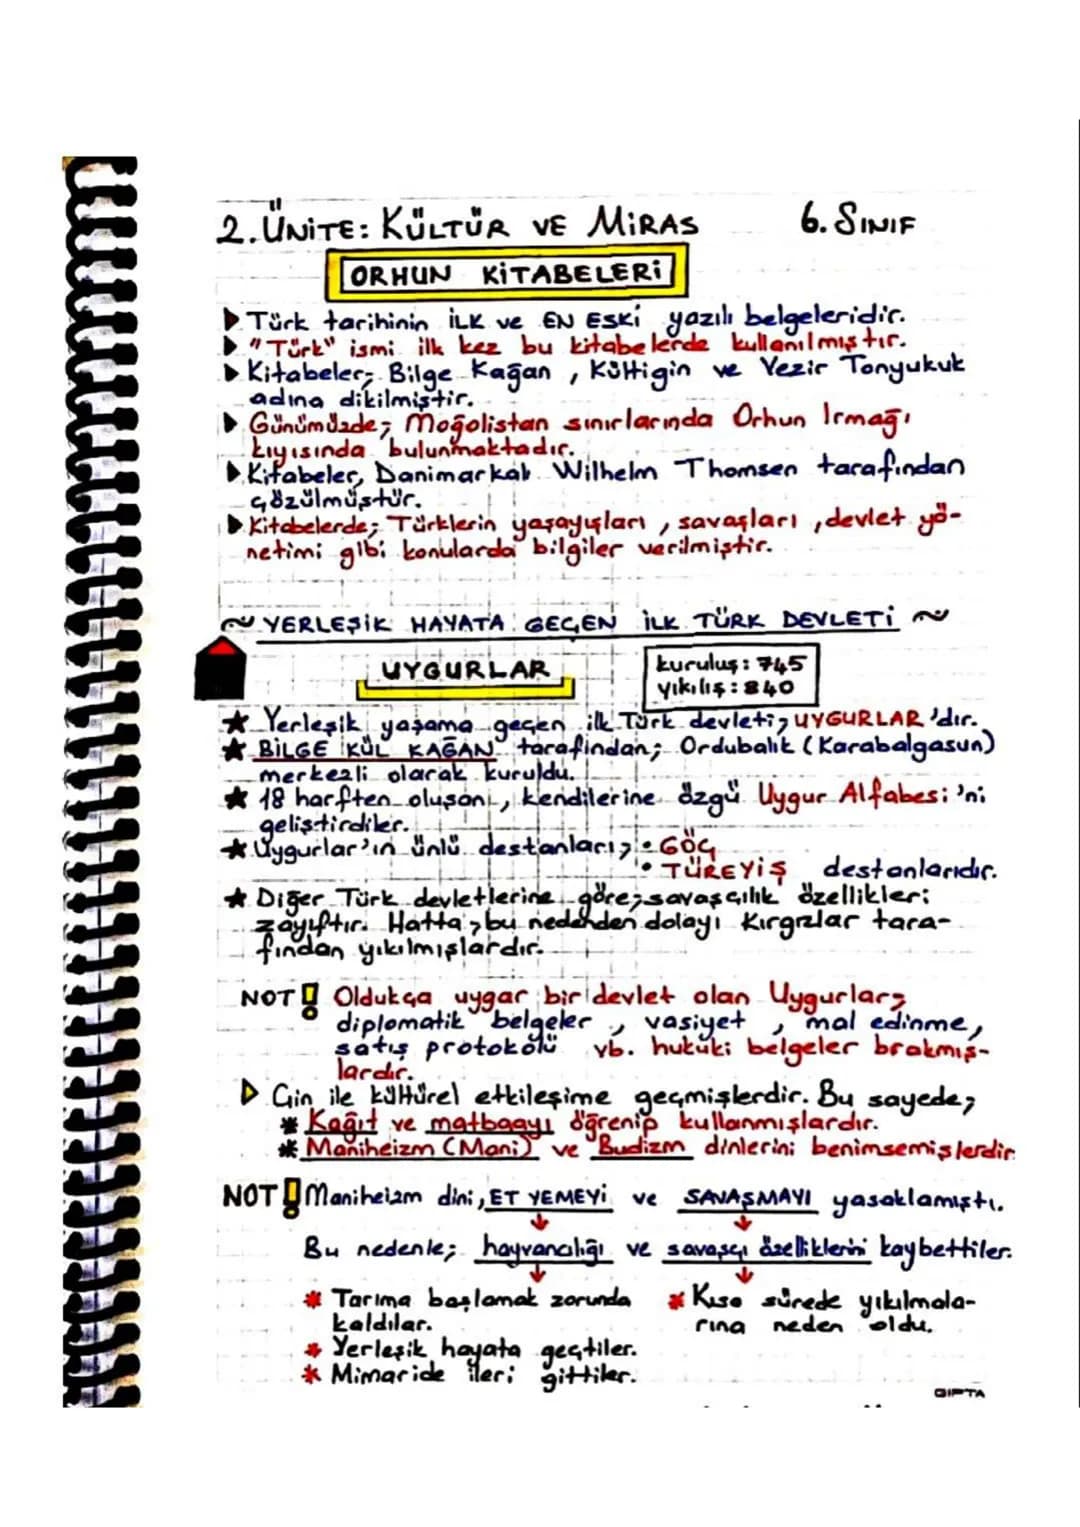 2. ÜNİTE: KÜLTÜR VE MİRAS 6. SINIF
ORHUN KİTABELERİ
Türk tarihinin İLK ve EN ESKİ yazılı belgeleridir.
"Türk" ismi ilk kez bu kitabelerde kullanılmıştır.
Kitabeler; Bilge Kağan, Kültigin ve Vezir Tonyukuk
adına dikilmiştir.
Günümüzde; Moğolistan sınırlarında Orhun Irmağı
kıyısında bulunmaktadır.
Kitabeler, Danimarkalı Wilhelm Thomsen tarafından
çözülmüştür.
Kitabelerde; Türklerin yaşayışları, savaşları, devlet yö-
netimi gibi konularda bilgiler verilmiştir.
~ YERLEŞİK HAYATA GEÇEN İLK TÜRK DEVLETİ ~
UYGURLAR
kuruluş: 745
yıkılış: 840
★ Yerleşik yaşama geçen ilk Türk devleti; UYGURLAR'dır.
★ BİLGE KÜL KAĞAN tarafından; Ordubalık (Karabalgasun)
merkezli olarak kuruldu.
★ 18 harften oluşan, kendilerine özgü Uygur Alfabesi'ni
geliştirdiler.
★ Uygurlar'ın ünlü destanları; • GÖÇ
• TÜREYİŞ destanlarıdır.
★ Diğer Türk devletlerine göre; savaşçılık özellikleri
zayıftır. Hatta, bu nedenden dolayı Kırgızlar tara-
fından yıkılmışlardır.
NOT! Oldukça uygar bir devlet olan Uygurlar;
diplomatik belgeler, vasiyet, mal edinme,
satış protokolü vb. hukuki belgeler bırakmış-
lardır.
Çin ile kültürel etkileşime geçmişlerdir. Bu sayede;
* Kağıt ve matbaayı öğrenip kullanmışlardır.
* Maniheizm (Mani) ve Budizm dinlerini benimsemişlerdir
NOT! Maniheizm dini, ET YEMEYİ ve SAVAŞMAYI yasaklamıştı.
Bu nedenle; hayvancılığı ve savaşçı özelliklerini kaybettiler.
* Tarıma başlamak zorunda
kaldılar.
* Yerleşik hayata geçtiler.
* Mimaride ileri gittiler.
* Kısa sürede yıkılmala-
rına neden oldu.
GIPTA